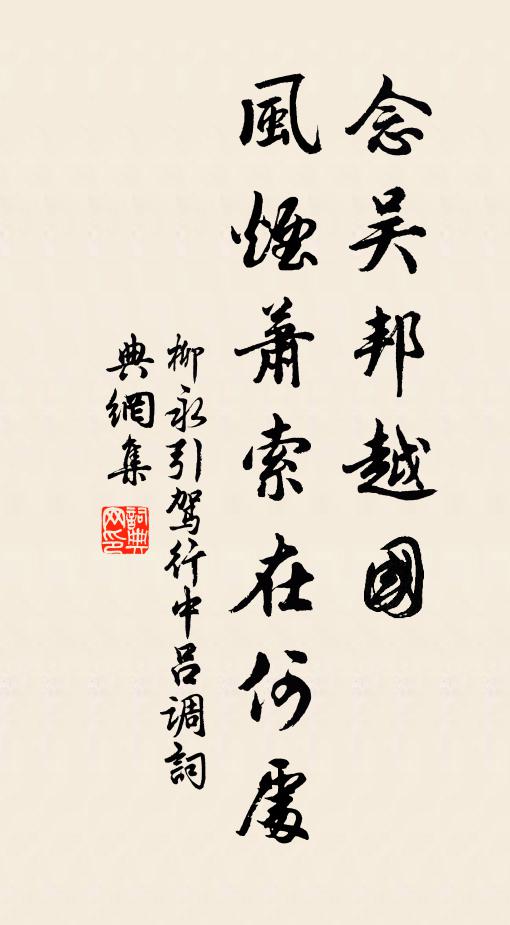 念吴邦越國
風煙蕭索在何處
柳永引駕行中呂调詞
典網集
詞典
网印